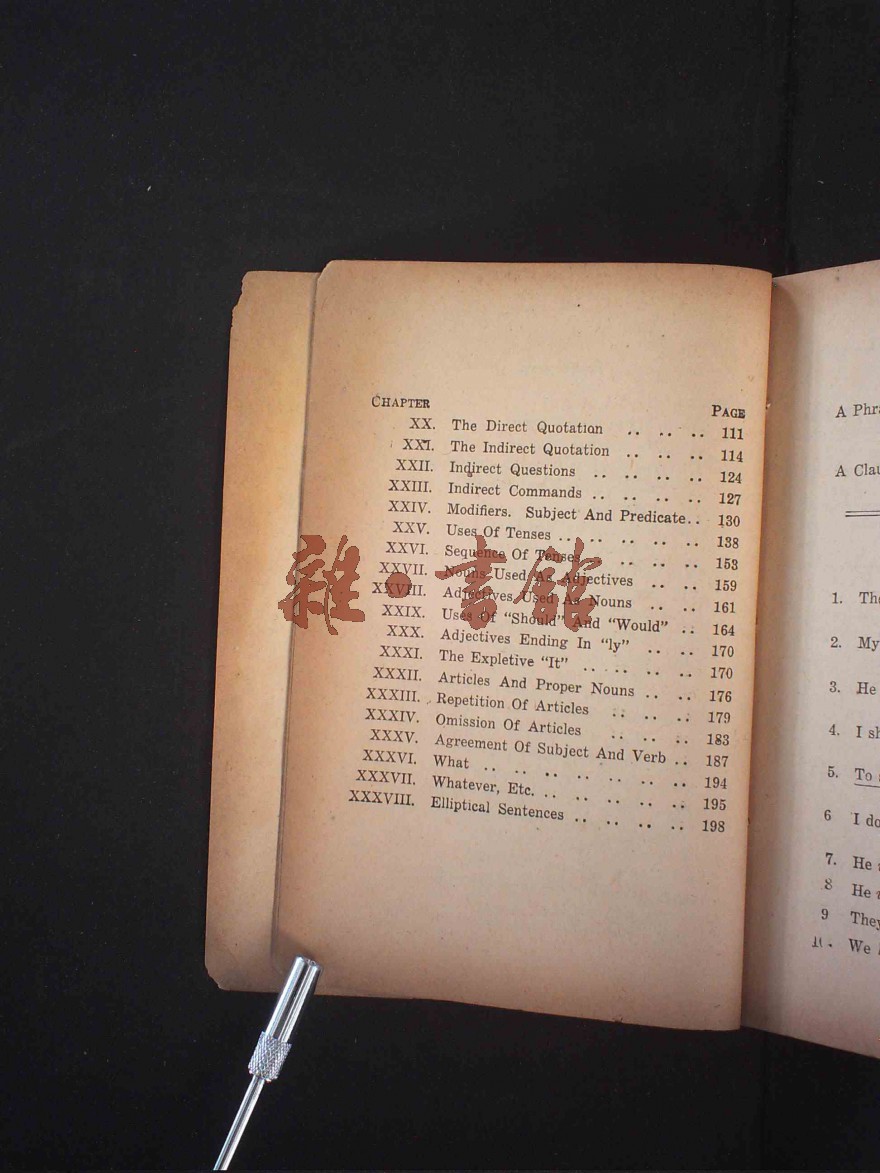 CHAPTER PAGE
XX. The Direct Quotation .. .. .. 111
XXI. The Indirect Quotation .. .. .. 114
XXII. Indirect Questions .. .. .. .. 124
XXIII. Indirect Commands .. .. .. .. 127
XXIV. Modifiers. Subject And Predicate.. 130
XXV. Uses Of Tenses .. .. .. .. .. 138
XXVI. Sequence Of Tenses .. .. .. 153
XXVII. Nouns Used As Adjectives .. .. 159
XXVIII. Adjectives Used As Nouns .. .. 161
XXIX. Uses Of "Should" And "Would" .. 164
XXX. Adjectives Ending In "ly" .. .. 170
XXXI. The Expletive "It" .. .. .. .. 170
XXXII. Articles And Proper Nouns .. .. 176
XXXIII. Repetition Of Articles .. .. .. 179
XXXIV. Omission Of Articles .. .. .. 183
XXXV. Agreement Of Subject And Verb .. 187
XXXVI. What .. .. .. .. .. .. .. 194
XXXVII. Whatever, Etc. .. .. .. .. .. 195
XXXVIII. Elliptical Sentences .. .. .. .. 198
雜·書館
A Phr
A Clau
1. The
2. My
3. He
4. I sh
5. To
6 I do
7. He
8 He
9 They
10. We